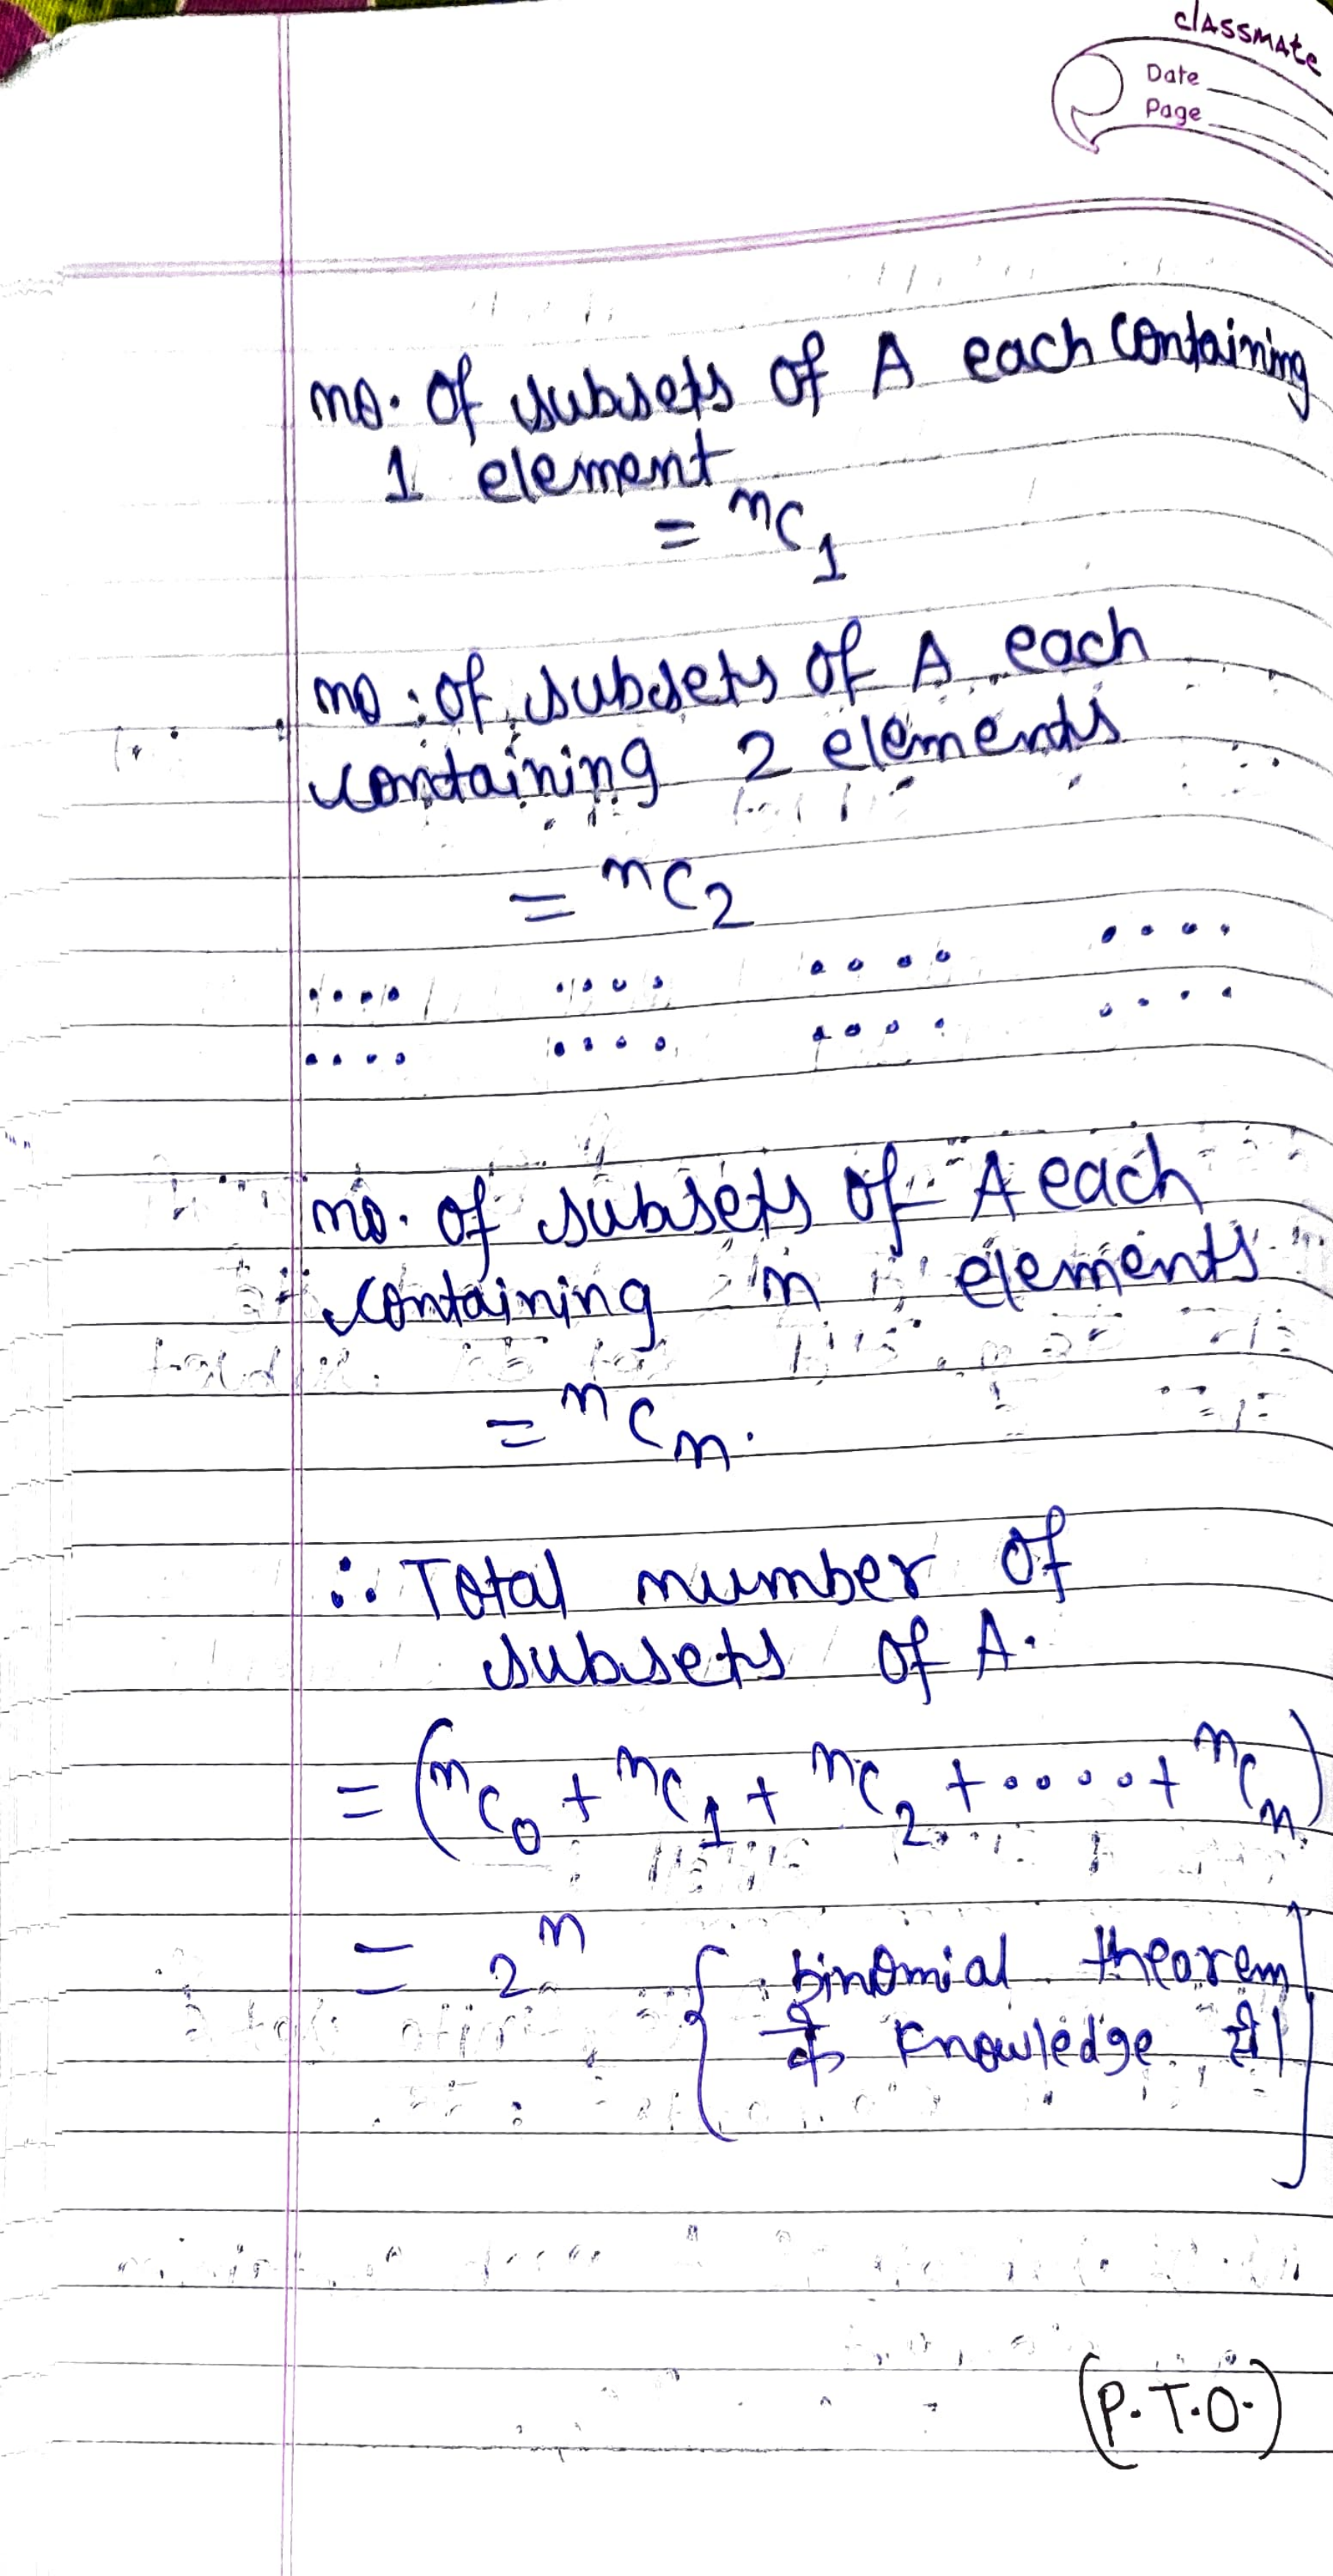 classmate
Date
Page
no. of subsets of A each containing
1 element
= ⁿC₁
no. of subsets of A each
containing 2 elements
= ⁿC₂
.... .... .... ....
.... .... .... ....
no. of subsets of A each
containing n elements
= ⁿCₙ.
∴ Total number of
subsets of A.
= (ⁿC₀ + ⁿC₁ + ⁿC₂ + ..... + ⁿCₙ)
= 2ⁿ { binomial theorem
के knowledge से। ]
(P.T.O.)